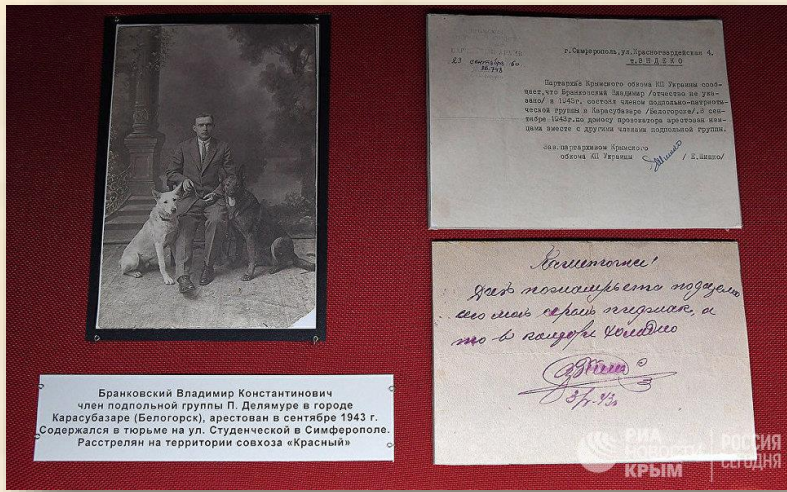 Бранковский Владимир Константинович
член подпольной группы П. Делямуре в городе
Карасубазаре (Белогорск), арестован в сентябре 1943 г.
Содержался в тюрьме на ул. Студенческой в Симферополе.
Расстрелян на территории совхоза «Красный»
23 сентября 60
г.Симферополь, ул.Красногвардейская 4,
Партархив Крымского обкома КП Украины сооб-
щает, что Бранковский Владимир /отчество не ука-
зано/ в 1943г. состоял членом подпольно-патриоти-
ческой группы в Карасубазаре /Белогорске/. 8 сен-
тября 1943г. по доносу провокатора арестован нем-
цами вместе с другими членами подпольной группы.
Зав. партархивом Крымского
обкома КП Украины
мой пиджак, а
то в холодно
РИА
НОВОСТИ
КРЫМ
РОССИЯ
СЕГОДНЯ